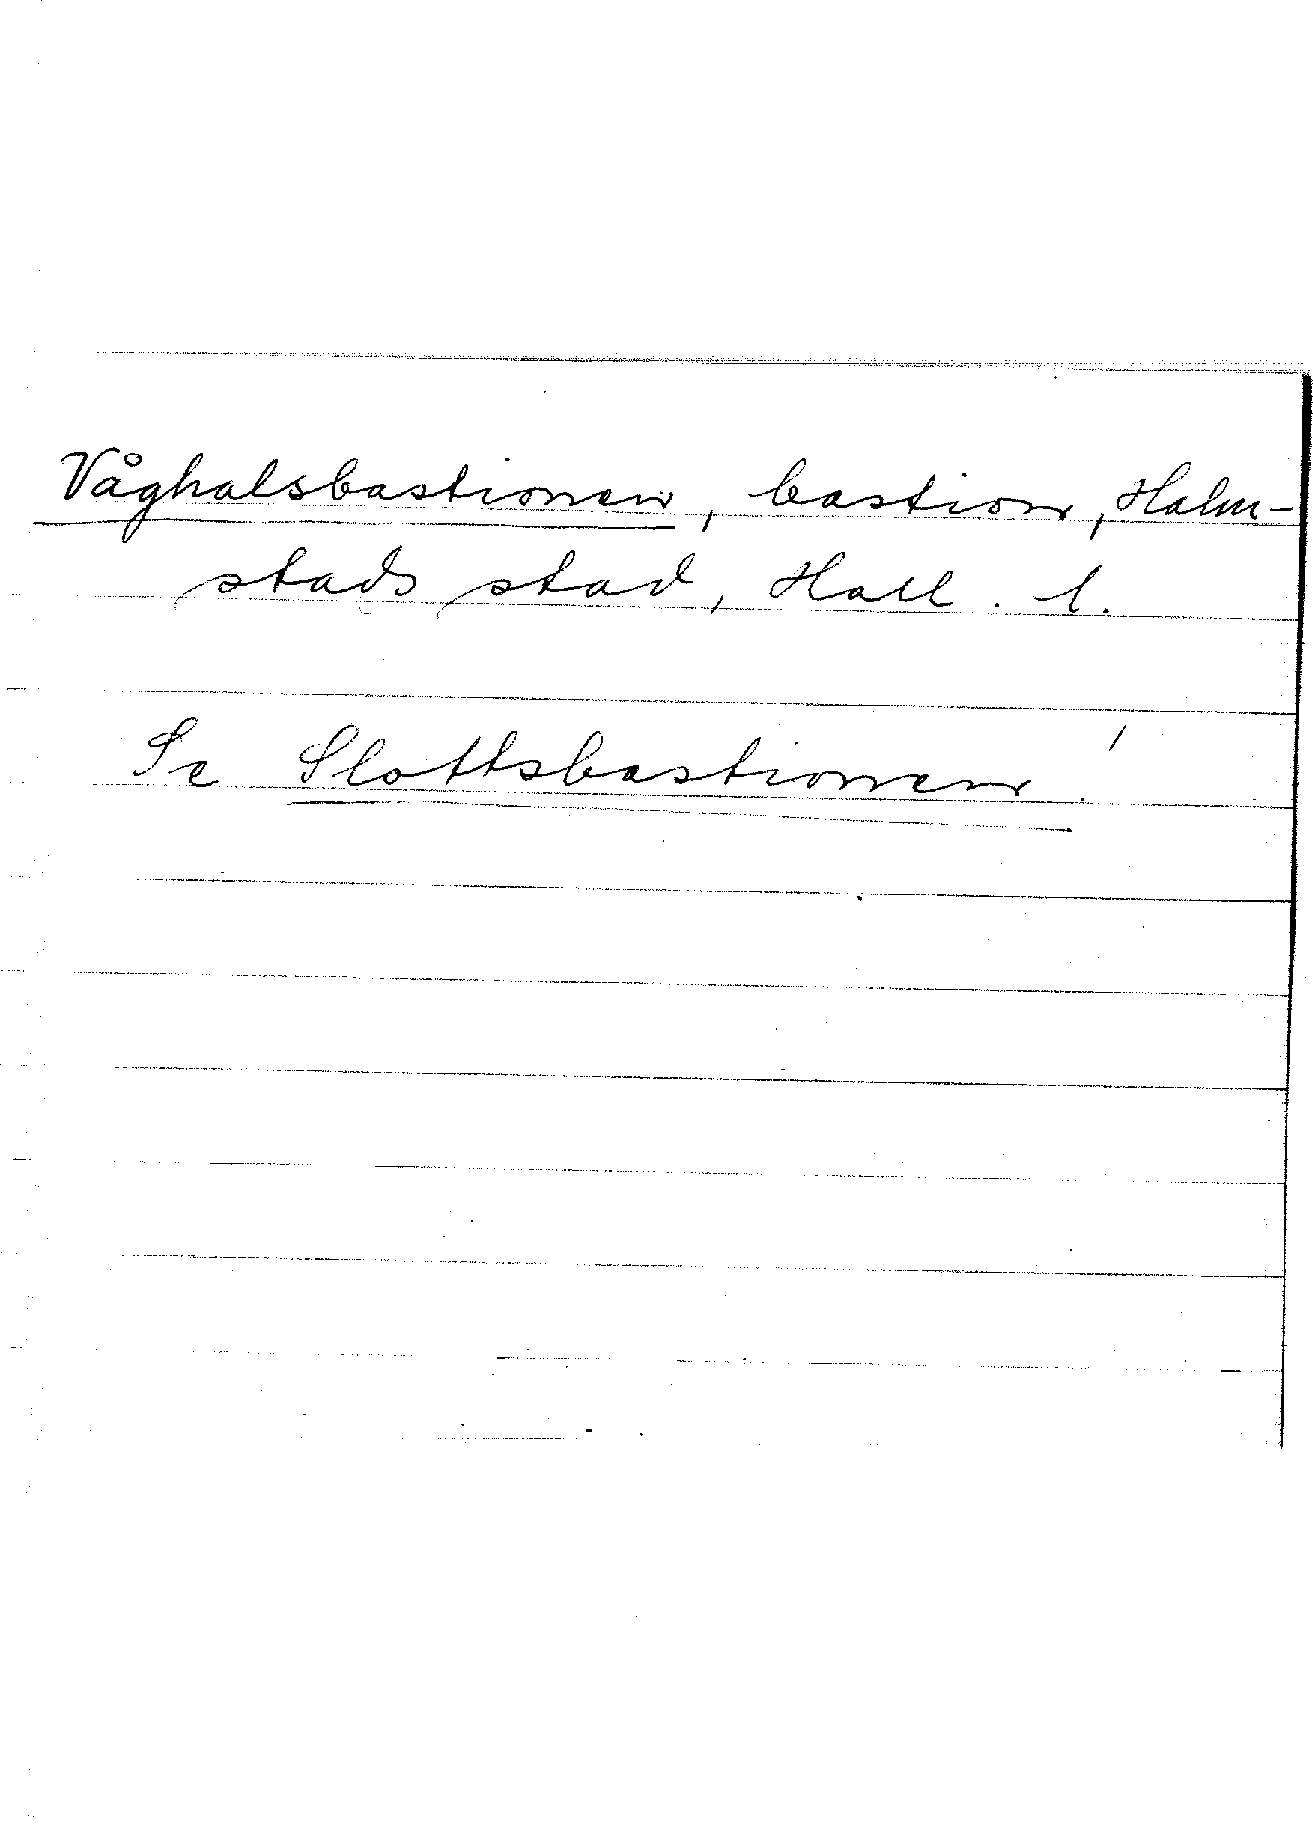 Våghalsbastionen, bastion, Halm-
stads stad, Hall. l.
Se Slottsbastionen!